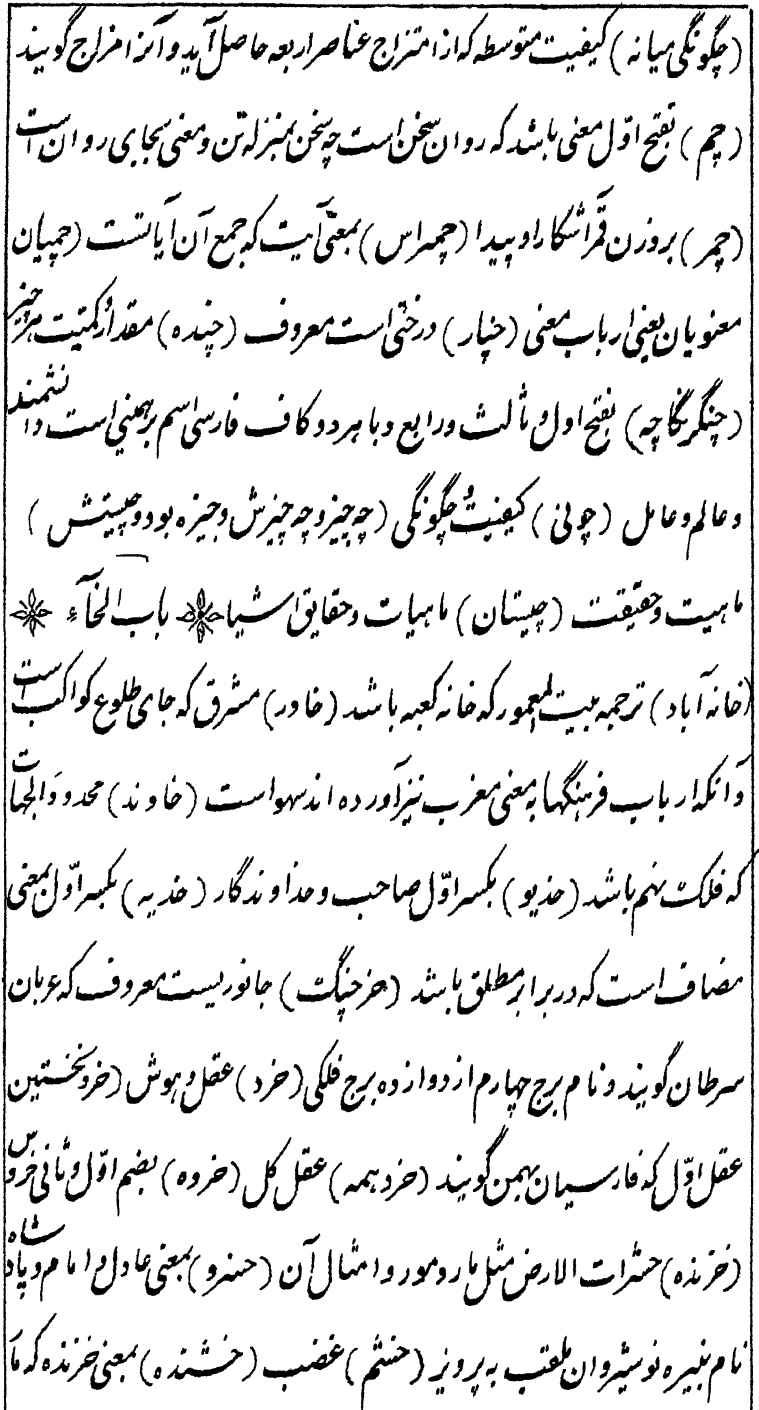 (چگونگی میانه) کیفیت متوسطه که از امتزاج عناصر اربعه حاصل آید و آنرا مزاج گویند
(چم) بفتح اوّل معنی باشد که روان سخن است چه سخن بمنزله تن و معنی بجای روان است
(چمر) بروزن قمر آشکارا و پیدا (چمراس) بمعنی آیت که جمع آن آیاتست (چمیان
معنویان یعنی ارباب معنی (چنار) درختی است معروف (چنده) مقدار و کمیّت هر چیز
(چنگرنگاچه) بفتح اول و ثالث و رابع و با هر دو کاف فارسی اسم برهمنی است دانشمند
و عالم و عامل (چونی) کیفیت و چگونگی (چه چیز و چه چیزش و چیزه بود و چیستش)
ماهیت و حقیقت (چیستان) ماهیات و حقایق اشیا باب الخآء
(خانه آباد) ترجمه بیت المعمور که خانه کعبه باشد (خاور) مشرق که جای طلوع کواکب است
و آنکه ارباب فرهنگها به معنی مغرب نیز آورده اند سهو است (خاوند) محدد الجهات
که فلک نهم باشد (خدیو) بکسر اوّل صاحب و خداوندگار (خدیه) بکسر اوّل بمعنی
مضاف است که در برابر مطلق باشد (خرچنگ) جانوریست معروف که عربان
سرطان گویند و نام برج چهارم از دوازده برج فلکی (خرد) عقل و هوش (خرد نخستین
عقل اوّل که فارسیان بهمن گویند (خرد همه) عقل کل (خروه) بضم اوّل و ثانی خروس
(خزنده) حشرات الارض مثل مار و مور و امثال آن (خسرو) بمعنی عادل و امام و پادشاه
نام نبیره نوشیروان ملقب به پرویز (خشم) غضب (خشنده) بمعنی خزنده که ما